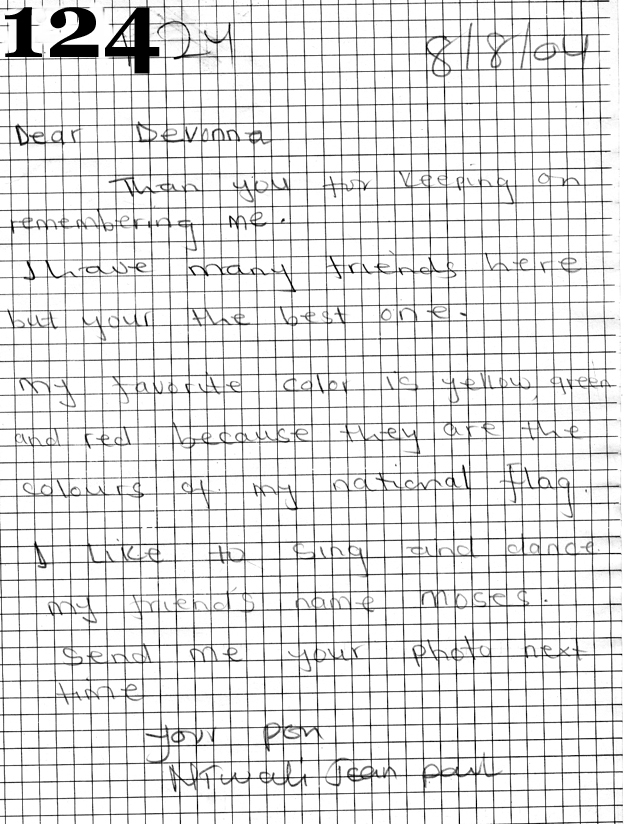 124
124 8/8/04
Dear Devonna
Than you for keeping on
remembering me.
I have many friends here
but your the best one.
my favorite color is yellow, green
and red because they are the
colours of my national flag.
I like to sing and dance
my friend's name moses.
send me your photo next
time
your pen
NTwali Jean paul